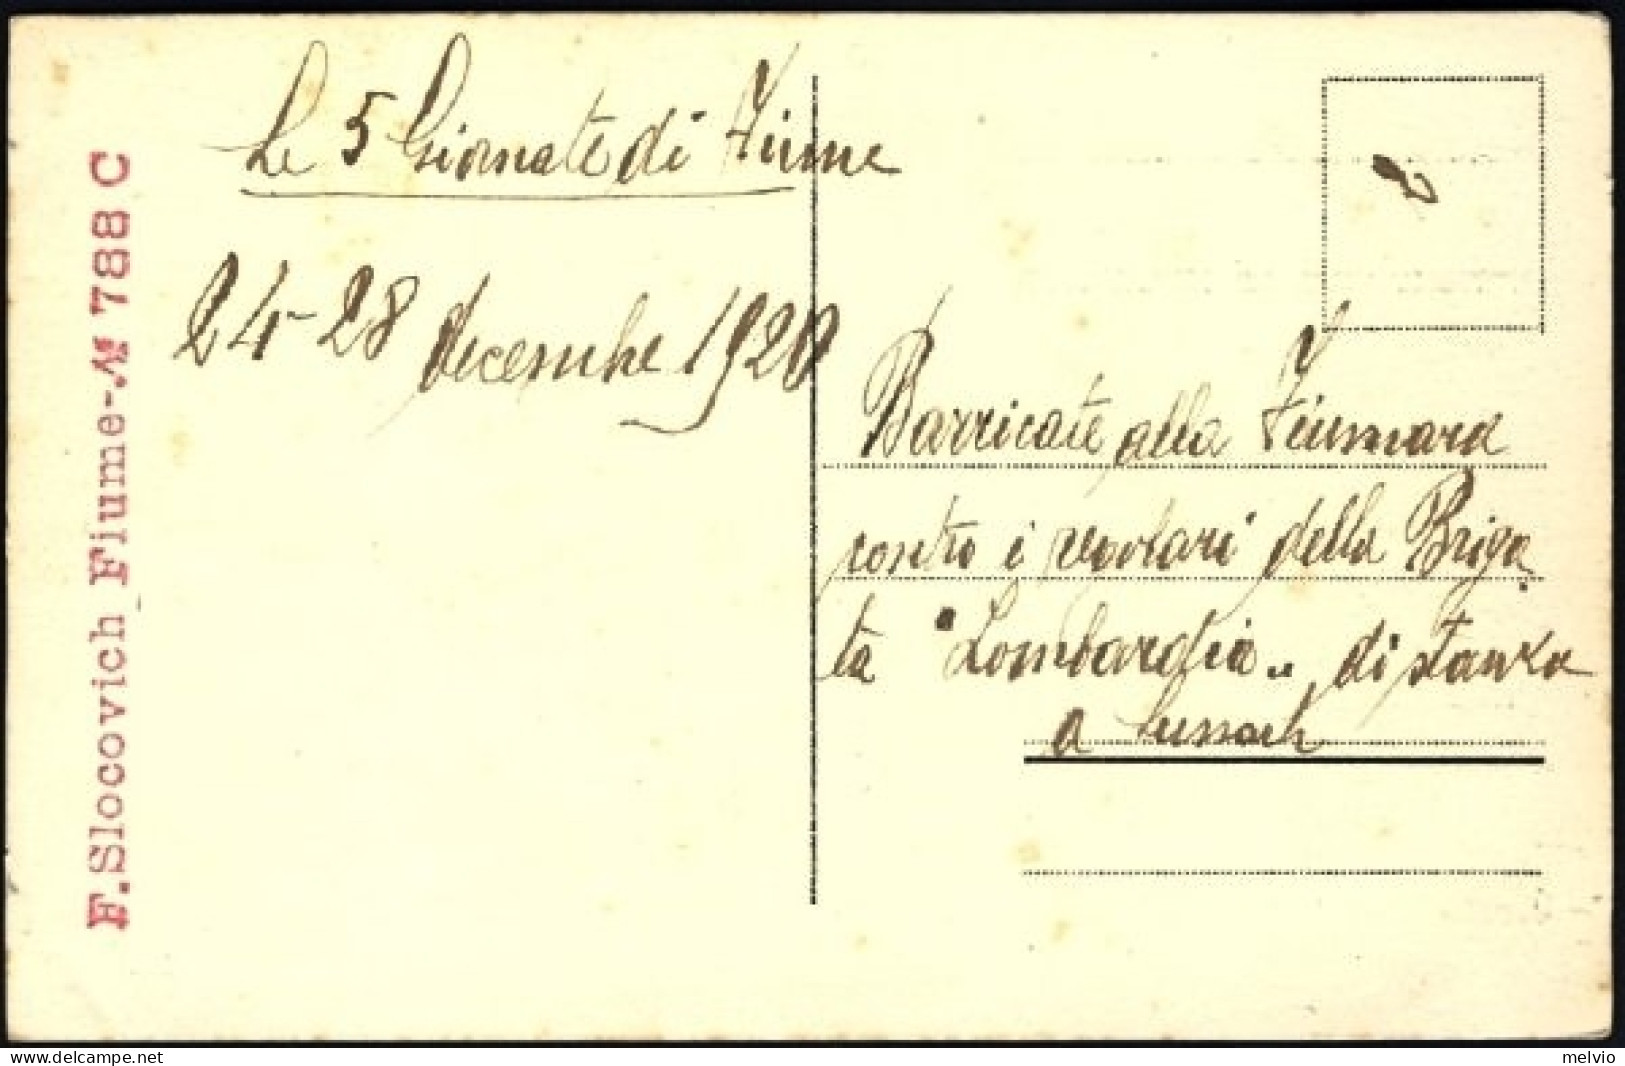 Le 5 Giornate di Fiume
24-28 decembre 1920
Barricate alla Fiumara
contro i regolari della Briga
ta "Lombardia" di stanza
a Sussach
F. Slocovich Fiume-№ 788 C
www.delcampe.net
melvio